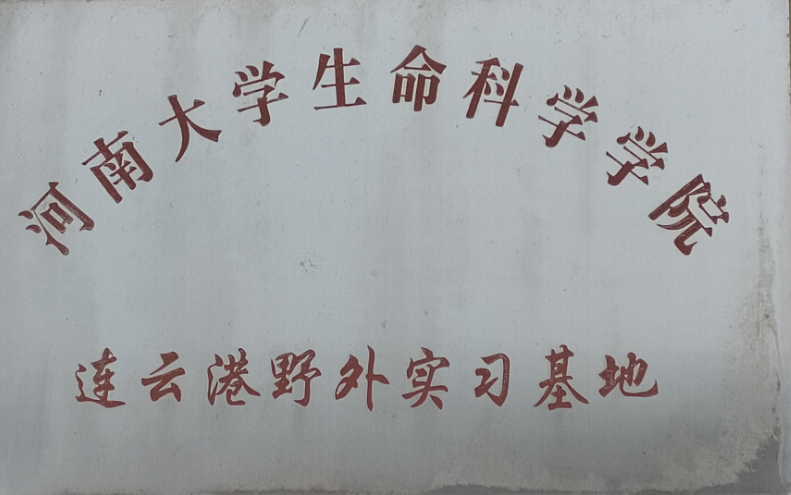 河南大学生命科学学院
连云港野外实习基地